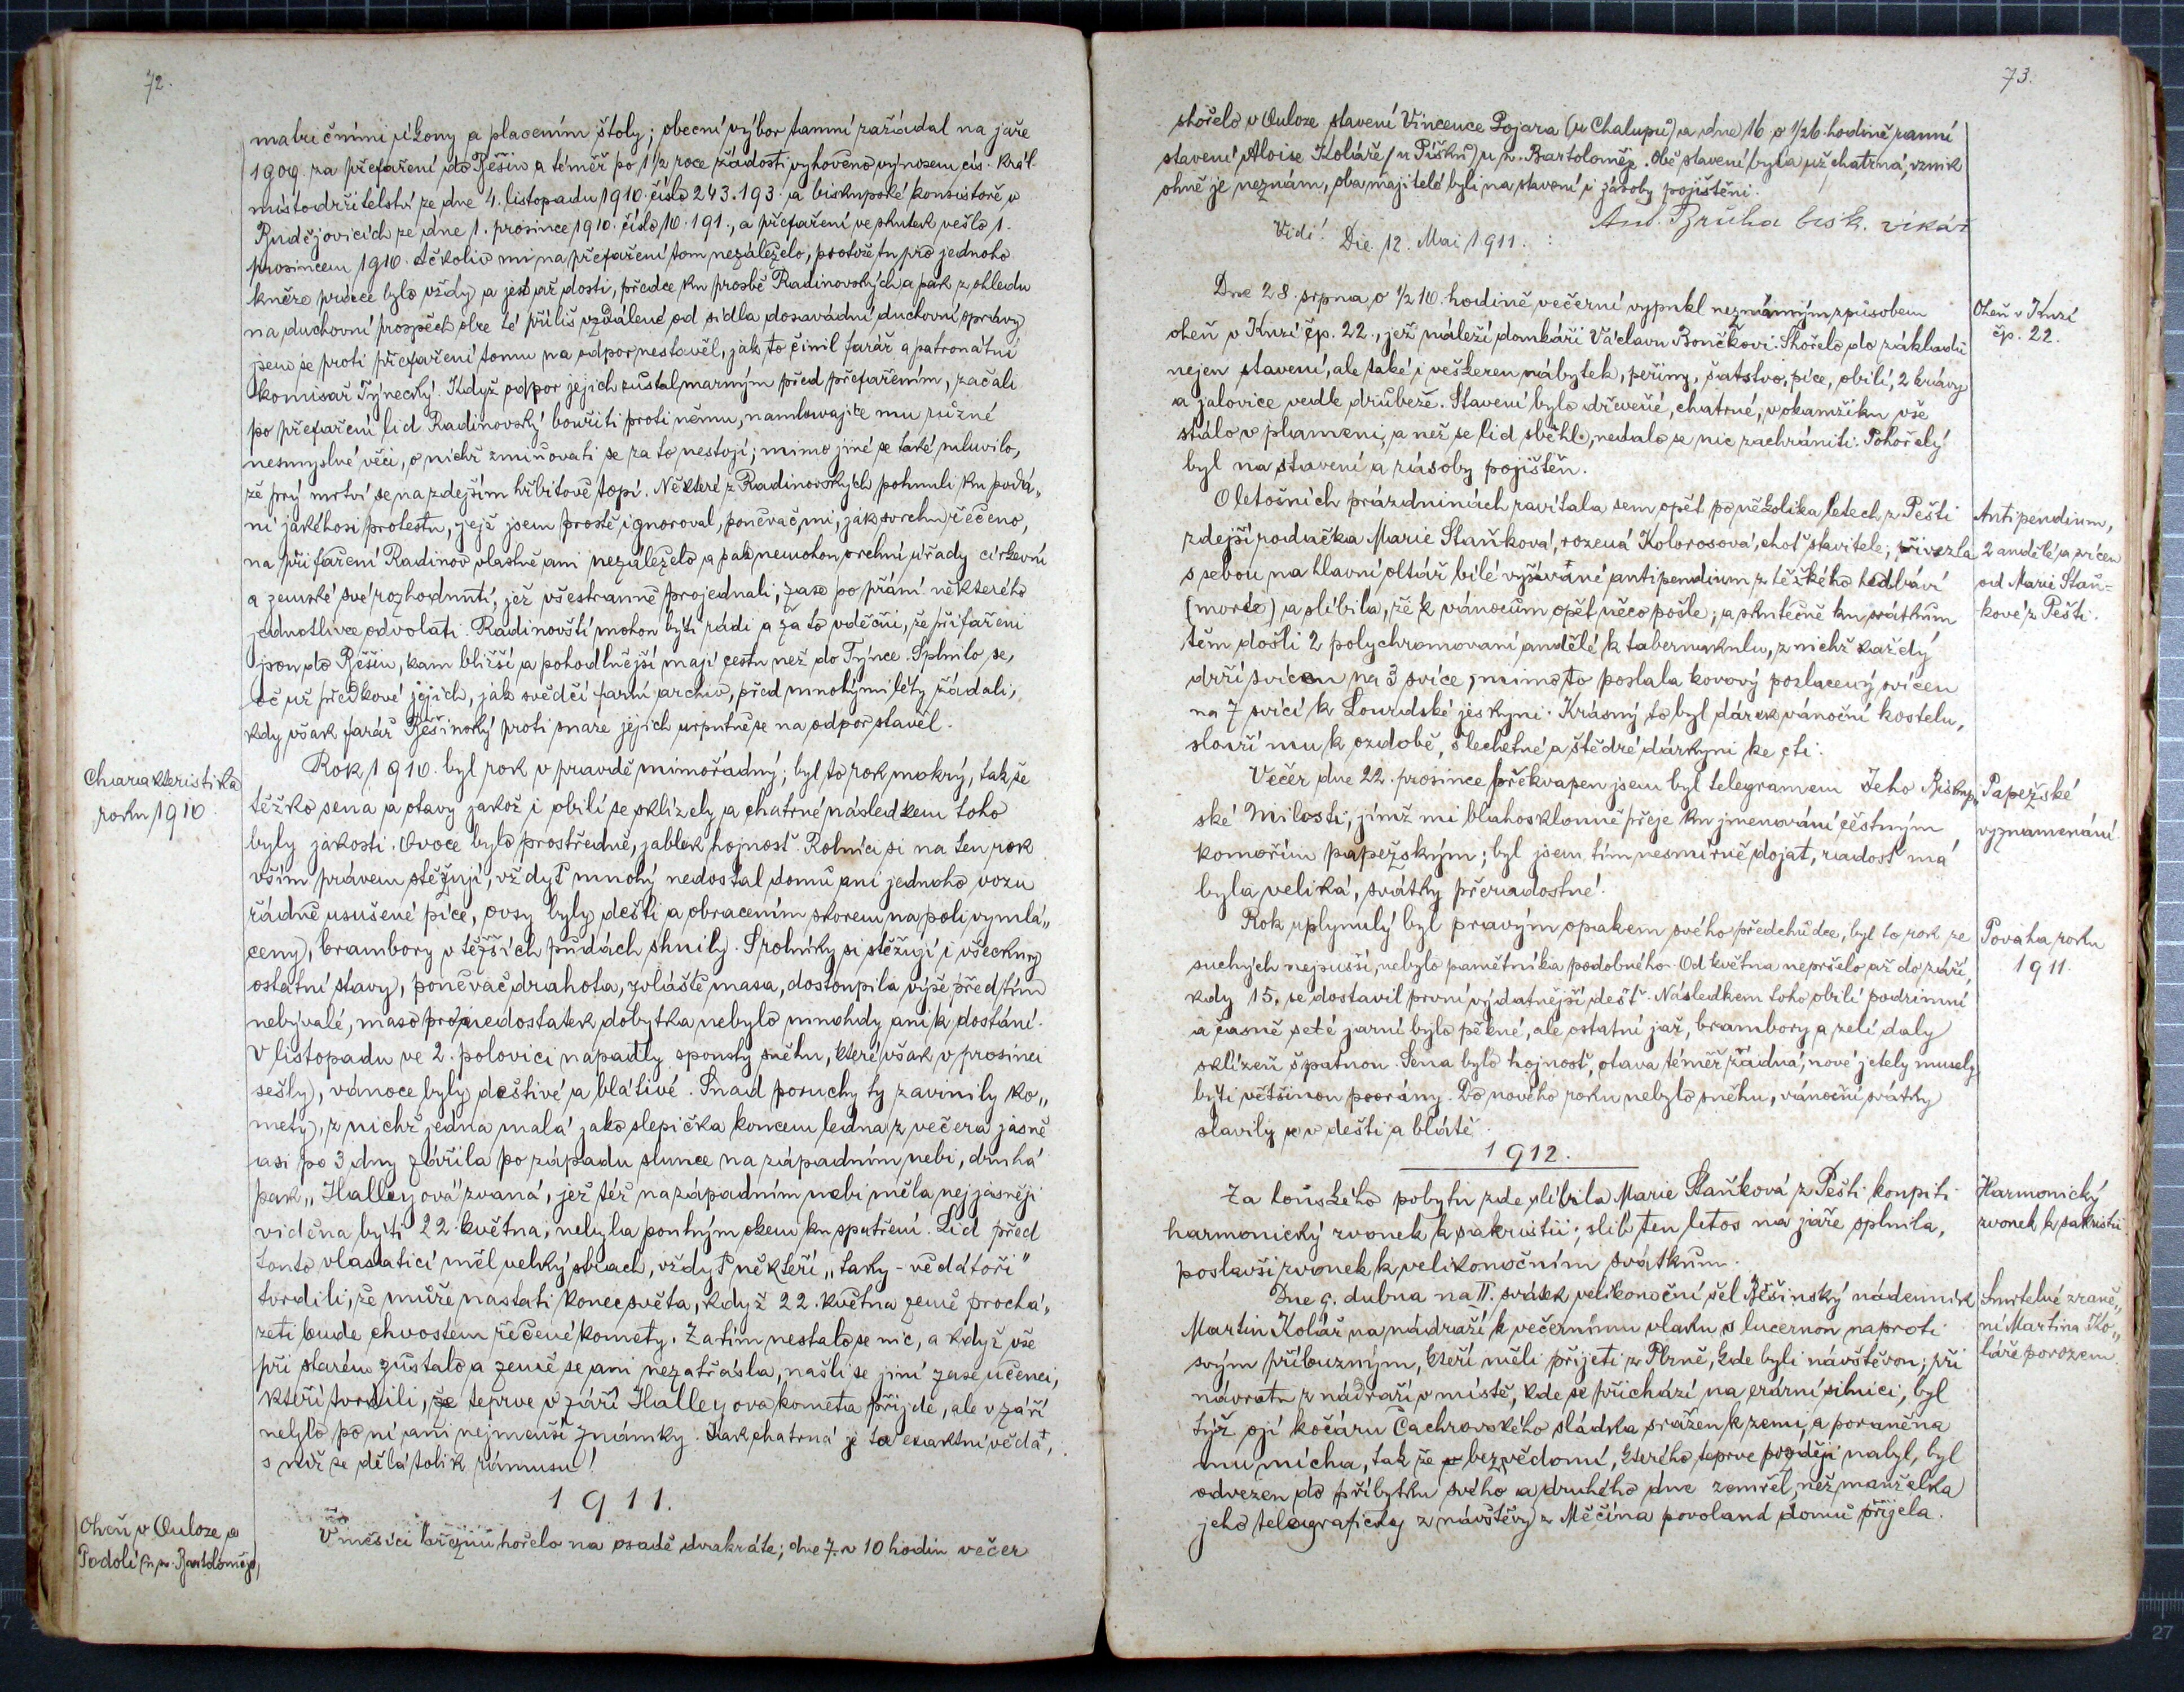 72.
matričními úkony a placením štoly; obecní výbor tamní zažádal na jaře
1909. za přefaření do Běšin a téměř po 1 1/2 roce žádosti vyhověno výnosem cís. král.
místodržitelství ze dne 4. listopadu 1910. číslo 243.193. a biskupské konsistoře v
Budějovicích ze dne 1. prosince 1910. číslo 10.191., a přefaření ve skutek vešlo 1.
prosincem 1910. Ačkoliv mi na přefaření tom nezáleželo, protože tu pro jednoho
kněze práce bylo vždy a jest až dosti, předce ku prosbě Radinovských a pak z ohledu
na duchovní prospěch obce té příliš vzdálené od sídla dosavadní duchovní správy
jsem se proti přefaření tomu na odpor nestavěl, jak to činil farář a patronátní
komisař Týnecký. Když odpor jejich zůstal marným před přefařením, začali
po přefaření lid Radinovský bouřiti proti němu, namlouvajíce mu různé
nesmyslné věci, o nichž zmiňovati se za to nestojí; mimo jiné se také mluvilo,
že prý mrtví se na zdejším hřbitově topí. Některé z Radinovských pohnuli ku podá„
ní jakéhosi protestu, jejž jsem prostě ignoroval, poněvač mi, jak svrchu řečeno,
na přifaření Radinov vlastně ani nezáleželo a pak nemohou vrchní úřady církevní
a zemské své rozhodnutí, jež všestranně projednali, zase po přání některého
jednotlivce odvolati. Radinovští mohou býti rádi a za to vděčni, že přifařeni
jsou do Běšin, kam bližší a pohodlnější mají cestu než do Týnce. Splnilo se,
oč už předkové jejich, jak svědčí farní archiv, před mnohými léty žádali,
kdy však farář Běšinský proti snaze jejich urputně se na odpor stavěl.
Charakteristika
roku 1910
Rok 1910. byl rok v pravdě mimořádný; byl to rok mokrý, tak že
těžko sena a otavy jakož i obilí se sklízely a chatrné následkem toho
byly jakosti. Ovoce bylo prostředně, jablek hojnost. Rolníci si na ten rok
vším právem stěžují, vždyť mnohý nedostal domů ani jednoho vozu
řádně usušené píce, ovsy byly dešti a obracením skorem na poli vymlá„
ceny, brambory v těžších půdách shnily. S rolníky si stěžují i všeckny
ostatní stavy, poněvač drahota, zvláště masa, dostoupila výše před tím
nebývalé, maso pro nedostatek dobytka nebylo mnohdy ani k dostání.
V listopadu ve 2. polovici napadly spousty sněhu, které však v prosinci
sešly, vánoce byly deštivé a blátivé. Snad poruchy ty zavinily ko„
mety, z nichž jedna malá jako slepička koncem ledna z večera jasně
asi po 3 dny zářila po západu slunce na západním nebi, druhá
pak „Halleyova“ zvaná, jež též na západním nebi měla nejjasněji
viděna býti 22. května, nebyla pouhým okem ku spatření. Lid před
touto vlasaticí měl velký strach, vždyť někteří „taky-vědátoři“
tvrdili, že může nastati konec světa, když 22. května země prochá„
zeti bude chvostem řečené komety. Zatím nestalo se nic, a když vše
při starém zůstalo a země se ani nezatřásla, našli se jiní zase učenci,
kteří tvrdili, že teprve v září Halleyova kometa přijde, ale v září
nebylo po ní ani nejmenší známky. Jak chatrná je ta exaktní věda,
s níž se dělá tolik rámusu!
1911.
Oheň v Ouloze a
Podolí (u sv. Bartoloměje)
V měsíci březnu hořelo na osadě dvakráte; dne 7. v 10 hodin večer
73.
shořelo v Ouloze stavení Vincence Pojara (u Chalupů) a dne 16. o 1/2 6. hodině ranní
stavení Aloise Koláře (u Pišků) u sv. Bartoloměje. Obě stavení byla už chatrná, vznik
ohně je neznám, oba majitelé byli na stavení i zásoby pojištěni.
Vidi! Die 12. Mai 1911. : Ant. Bruha bisk. vikář
Oheň v Knzi
čp. 22.
Dne 28. srpna o 1/2 10. hodině večerní vypukl neznámým způsobem
oheň v Knzi čp. 22., jež náleží domkáři Václavu Bončkovi. Shořelo do základů
nejen stavení, ale také i veškeren nábytek, peřiny, šatstvo, píce, obilí, 2 krávy
a jalovice vedle drůbeže. Stavení bylo dřevěné, chatrné, v okamžiku vše
stálo v plameni, a než se lid sběhl, nedalo se nic zachrániti. Pohořelý
byl na stavení a zásoby pojištěn.
Antipendium,
2 andělé a svícen
od Marie Staň-
kové z Pešti.
O letošních prázdninách zavítala sem opět po několika letech z Pešti
zdejší rodačka Marie Staňková, rozená Kolorosová, choť stavitele; přivezla
s sebou na hlavní oltář bílé vyšívané antipendium z těžkého hedbáví
(moiré) a slíbila, že k vánocům opět něco pošle; a skutečně ku svátkům
těm došli 2 polychromovaní andělé k tabernakulu, z nichž každý
drží svícen na 3 svíce; mimo to poslala kovový pozlacený svícen
na 7 svící k Lourdské jeskyni. Krásný to byl dárek vánoční kostelu,
slouží mu k ozdobě, šlechetné a štědré dárkyni ke cti.
Papežské
vyznamenání.
Večer dne 22. prosince překvapen jsem byl telegramem Jeho Biskup„
ské Milosti, jímž mi blahosklonně přeje ku jmenování čestným
komořím papežským; byl jsem tím nesmírně dojat, radost má
byla veliká, svátky přeradostné.
Povaha roku
1911.
Rok uplynulý byl pravým opakem svého předchůdce, byl to rok ze
suchých nejsušší, nebylo pamětníka podobného. Od května nepršelo až do září,
kdy 15. se dostavil první vydatnější dešť. Následkem toho obilí podzimní
a časně seté jarní bylo pěkné, ale ostatní jař, brambory a zelí daly
sklizeň špatnou. Sena bylo hojnost, otava téměř žádná, nové jetely musely
býti většinou poorány. Do nového roku nebylo sněhu, vánoční svátky
slavily se v dešti a blátě.
1912.
Harmonický
zvonek k sakristii
Za loňského pobytu zde slíbila Marie Staňková z Pešti koupiti
harmonický zvonek k sakristii; slib ten letos na jaře splnila,
poslavši zvonek k velikonočním svátkům.
Smrtelné zraně„
ní Martina Ko„
láře povozem.
Dne 9. dubna na II. svátek velikonoční šel Běšinský nádenník
Martin Kolář na nádraží k večernímu vlaku s lucernou naproti
svým příbuzným, kteří měli přijeti z Plzně, kde byli návštěvou; při
návratu z nádraží v místě, kde se přichází na erární silnici, byl
týž ojí kočáru Čachrovského sládka sražen k zemi, a poraněna
mu mícha, tak že bezvědomí, kterého teprve později nabyl, byl
odvezen do příbytku svého a druhého dne zemřel, než manželka
jeho telegraficky z návštěvy z Měčína povolaná domů přijela.